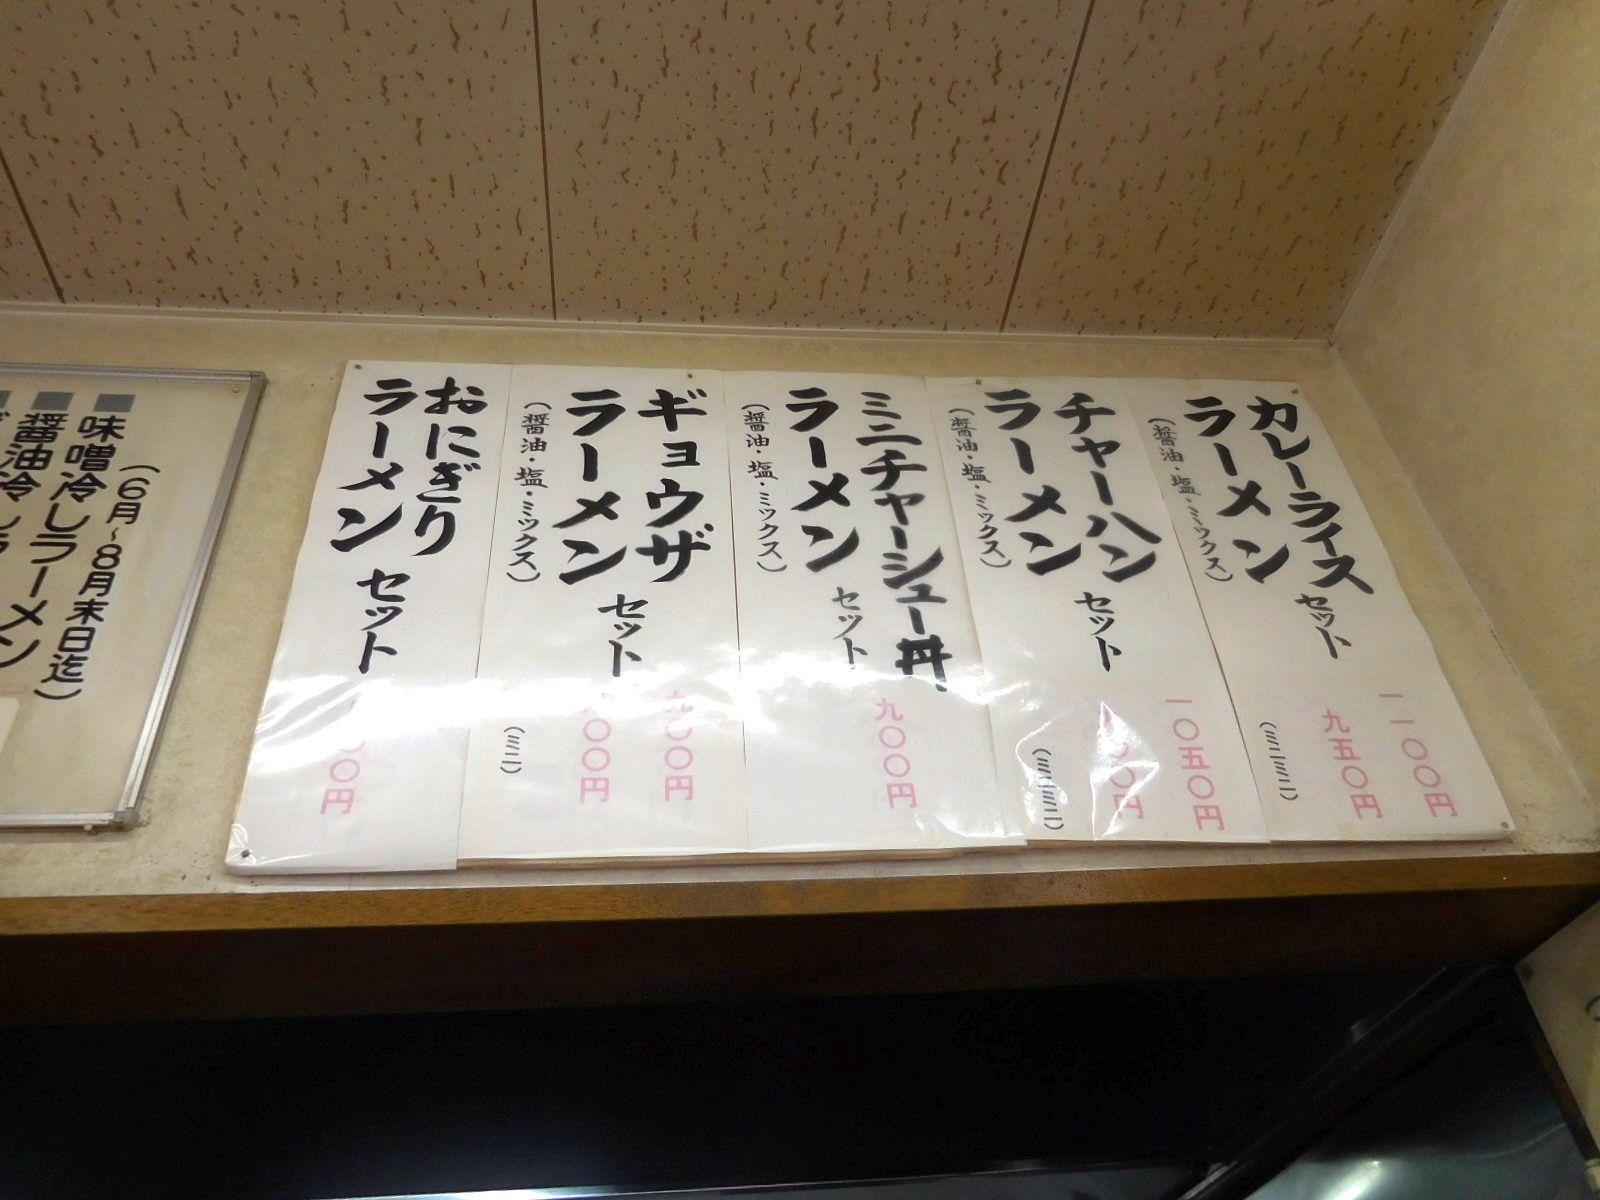 カレーライス
ラーメン セット
(醤油・塩・ミックス)
一一〇〇円
九五〇円
(ミニミニ)
チャーハン
ラーメン セット
(醤油・塩・ミックス)
一〇五〇円
〇〇円
(ミニミニ)
ミニチャーシュー丼
ラーメン セット
(醤油・塩・ミックス)
九〇〇円
ギョウザ
ラーメン セット
(醤油・塩・ミックス)
九〇〇円
〇〇円
(ミニ)
おにぎり
ラーメン セット
〇円
(6月~8月末日迄)
味噌冷しラーメン
醤油冷しラ